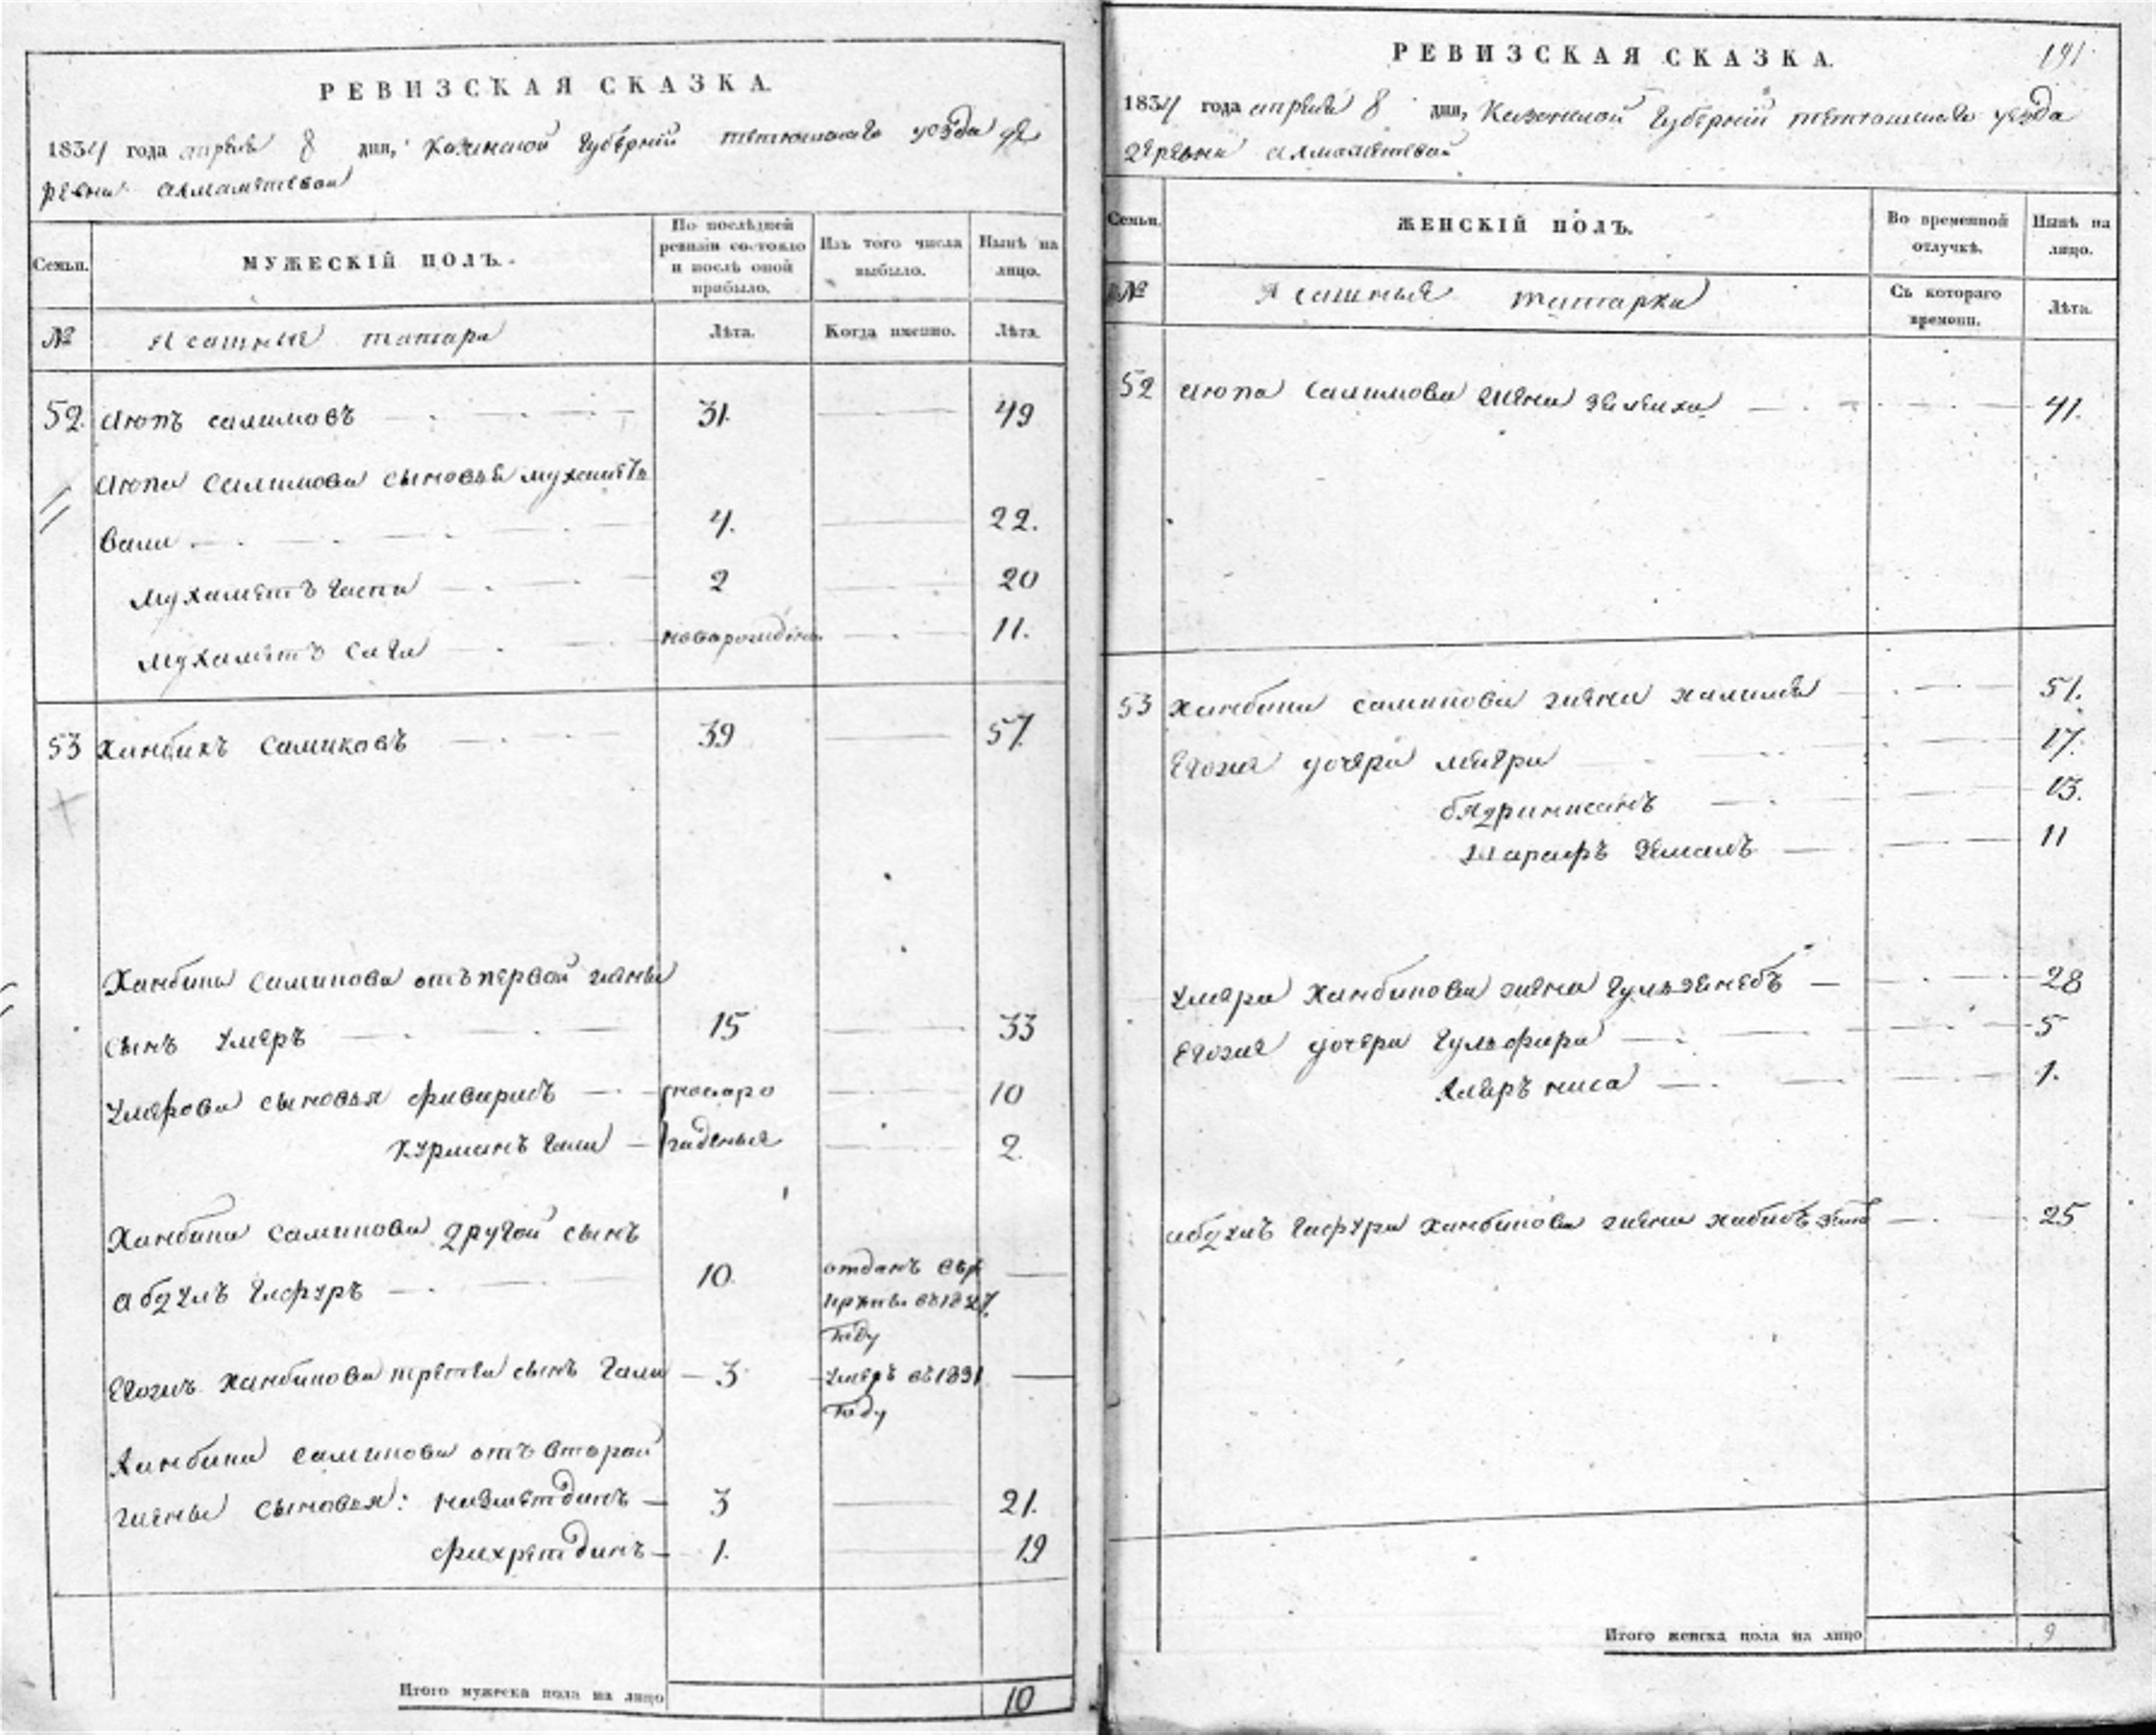 РЕВИЗСКАЯ СКАЗКА.
1834 года апреля 8 дня, Казанской Губернии тетюшскаго уезда де
ревни Ахмаметевой
Семьи.
МУЖЕСКІЙ ПОЛЪ.
По послѣдней ревизіи состояло и послѣ оной прибыло.
Изъ того числа выбыло.
Нынѣ на лицо.
№
Ясашные татары
Лѣта.
Когда именно.
Лѣта.
52. Аюпъ салимовъ 31. 49
Аюпа Салимова сыновья мухаметъ
Вали 4. 22.
Мухаметъ Гасти 2 20
Мухаметъ Саги новорожденъ 11.
53 Ханбикъ Самиковъ 39 57
Ханбина Саминова отъ первой жены
сынъ Умеръ 15 33
Умерова сыновья 10
Курманъ Гали 2.
Ханбина Саминова другой сынъ
Абдулъ Гафуръ 10. отданъ въ ре
круты въ 1827.
году
Егожъ Ханбинова третей сынъ Гали 3 умеръ въ 1831
году
Ханбина Саминова отъ второй
жены сыновья: Низметдинъ 3 21.
Фахретдинъ 1. 19
Итого мужеска пола на лицо 10
РЕВИЗСКАЯ СКАЗКА. 191
1834 года апреля 8 дня, Казанской Губернии тетюшскаго уезда
деревни Ахмаметевой
Семьи.
ЖЕНСКІЙ ПОЛЪ.
Во временной отлучкѣ.
Нынѣ на лицо.
№
Ясашныя татарки
Съ котораго времени.
Лѣта.
52 Аюпа Салимова жена Зюлиха 41.
53 Ханбина саминова жена Халимя 51.
Егожа дочери 17.
бядринисанъ 13.
Шарафъ Земалъ 11
Умера Ханбинова жена Гульзенебъ 28
Егожа дочери Гульфира 5
Хаеръ ниса 1.
Абдулъ Гафура Ханбинова жена 25
Итого женска пола на лицо 9